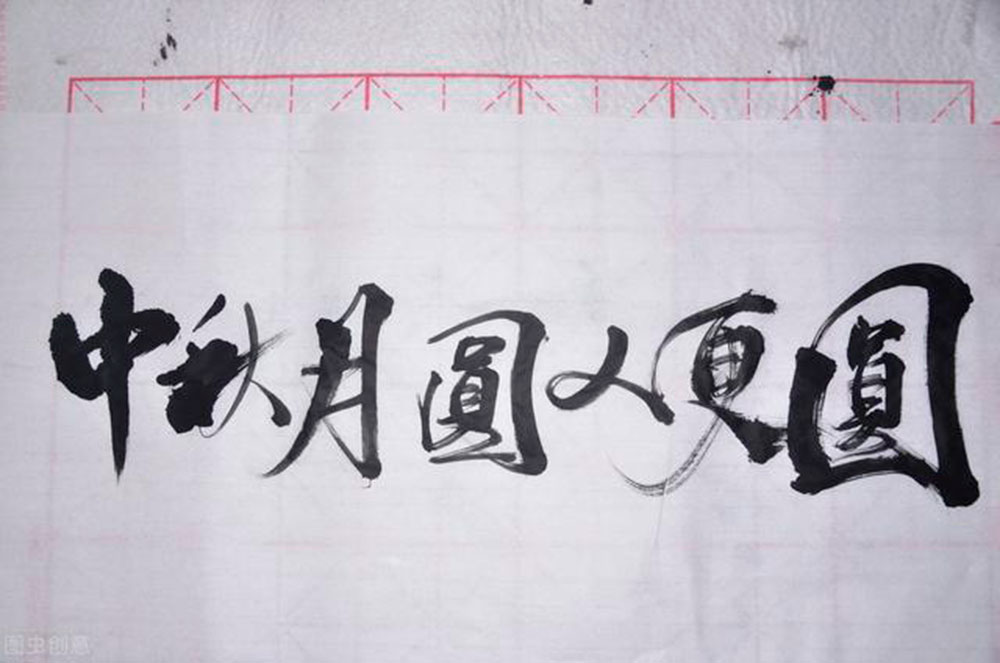 中秋月圓人更圓
图虫创意